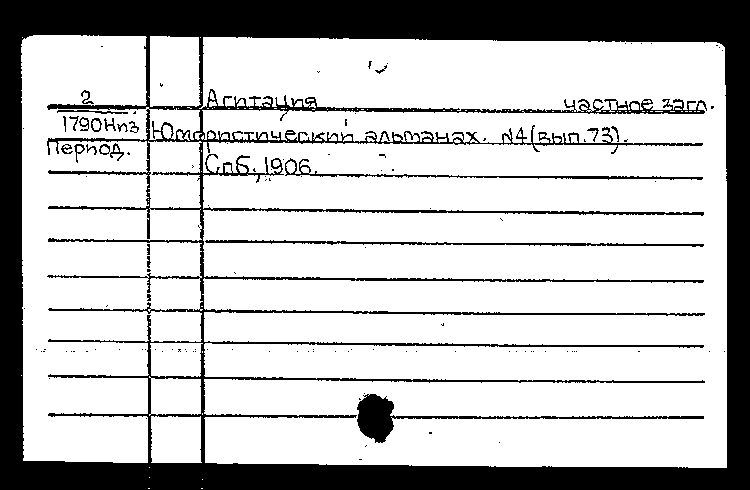 2 Агитация частное загл.
1790Нпз Юмористический альманах. №4(вып.73).
Период. Спб., 1906.